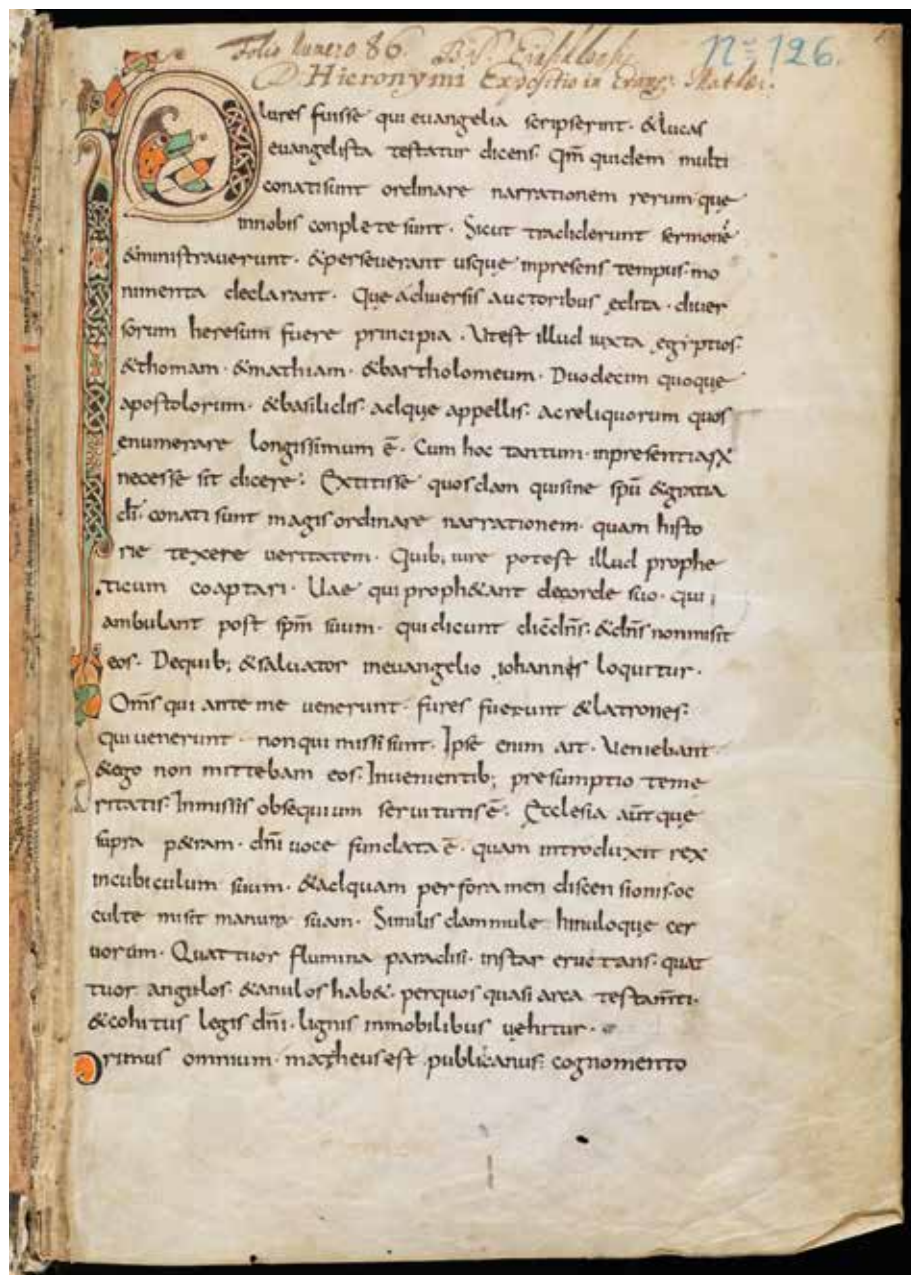 Folio numero 86. Bibl. Einsidlensis Nº 126.
D. Hieronymi Expositio in Evang: Mathei.
Plures fuisse qui euangelia scripserint · & lucas
euangelista testatur dicens· Qm̄ quidem multi
conati sunt ordinare narrationem rerum que
innobis conplete sunt · Sicut tradiderunt sermonē
&ministrauerunt · &perseuerant usque inpresens tempus· mo
nimenta declarant · Que adiuersis auctoribus edita · diuer
sorum heresum fuere principia · Utest illud iuxta egyptios·
&thomam · &mathiam · &bartholomeum · Duodecim quoque
apostolorum · &basilidis· adque appellis· acreliquorum quos
enumerare longissimum ē · Cum hoc tantum · inpresentia
necesse sit dicere· Extitisse quosdam quisine spū &gratia
di· conati sunt magis ordinare narrationem · quam histo
rie texere ueritatem · Quib; iure potest illud prophe
ticum coaptari · Uae qui proph&ant decorde suo · qui
ambulant post spm̄ suum · quidicunt dic̄ dn̄s· &dn̄s nonmisit
eos· Dequib; &saluator ineuangelio iohannis loquitur ·
Om̄s qui ante me uenerunt · fures fuerunt &latrones·
qui uenerunt · nonqui missi sunt · Ipse enim ait · Ueniebant
&ego non mittebam eos· Inuenientib; presumptio teme
ritatis· Inmissis obsequium seruitutis ē · Ecclesia aut̄ que
supra p&ram · dn̄i uoce fundata ē · quam introduxit rex
incubiculum suum · &adquam per foramen discensionis· oc
culte misit manum suam · Similis dammule hinuloque cer
uorum · Quattuor flumina paradisi · instar eructans· quat
tuor angulos· &anulos hab& · perquos quasi arca testam̄ti·
&cohitus legis dn̄i · lignis inmobilibus uehitur ·
Primus omnium · matheus est publicanus· cognomento